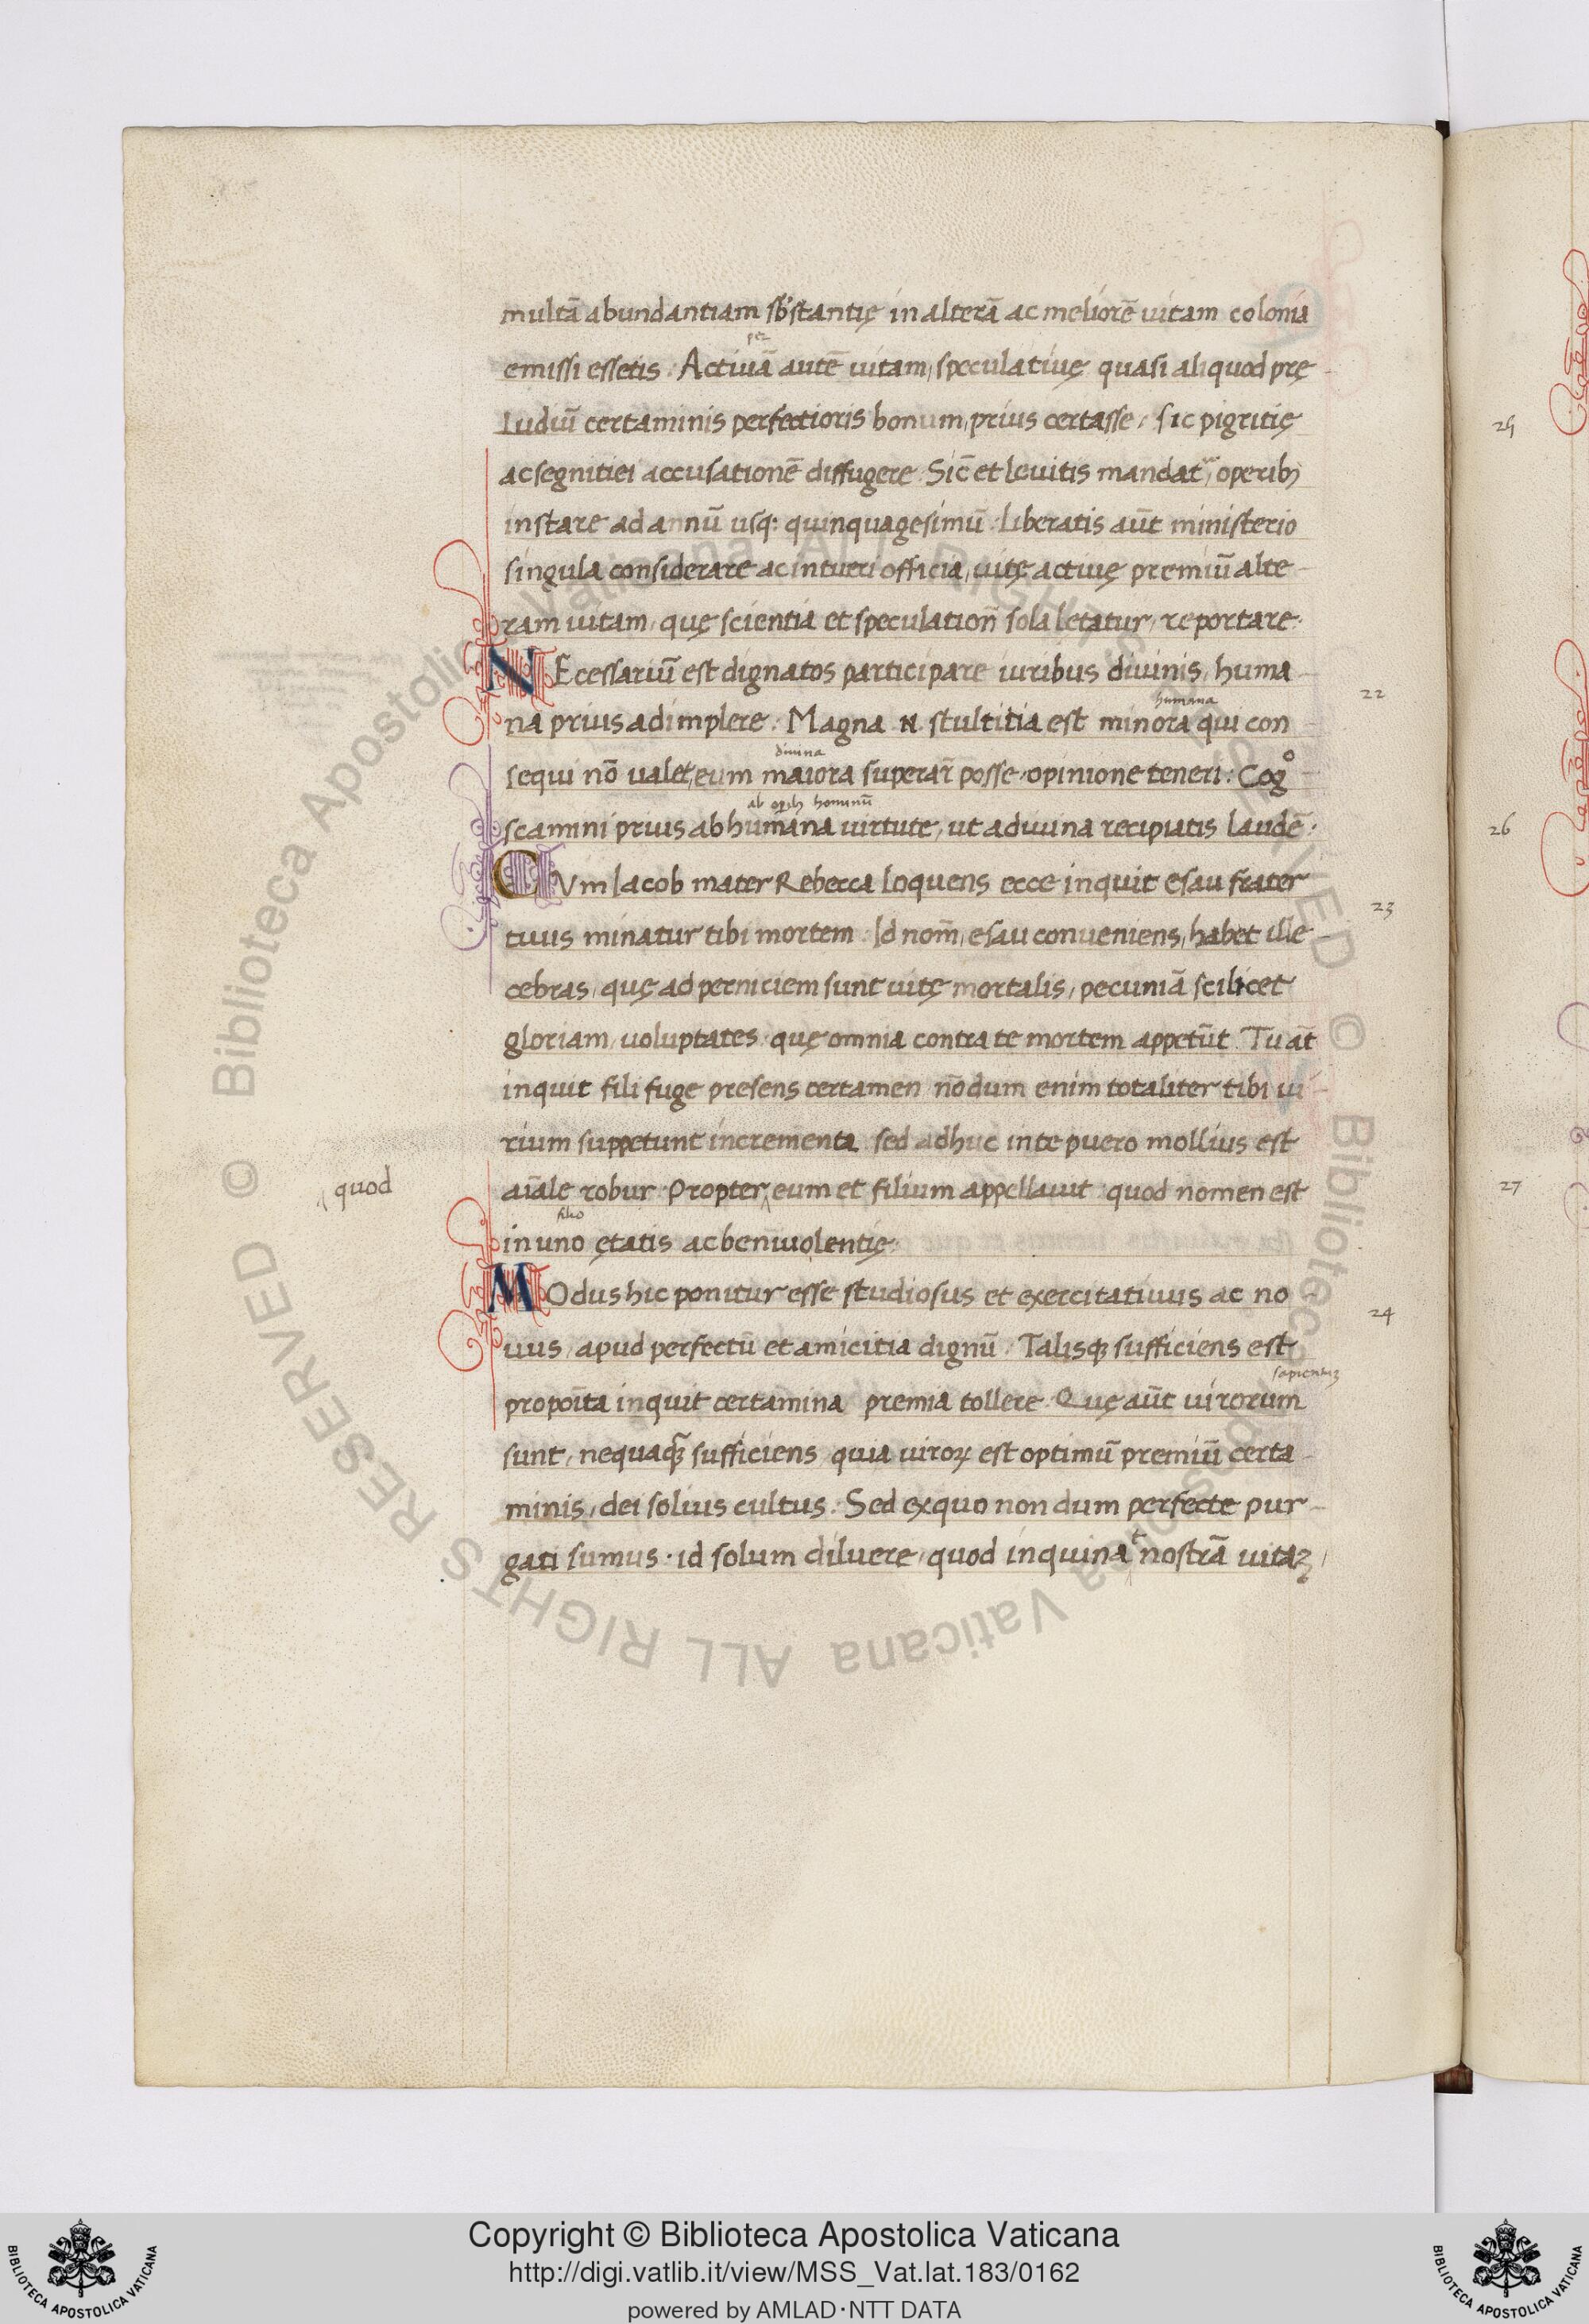 multā abundantiam sb̄stantię in alterā ac meliorē uitam colonia
emissi essetis. Actiuā autē uitam, speculatiuę quasi aliquod prę
ludiū certaminis perfectioris bonum, prius certasse, sic pigritię
ac segnitiei accusationē diffugere. Sic̄ et leuitis mandat, operib;
instare ad annū usq: quinquagesimū. Liberatis aūt ministerio
25
singula considerare ac intueri officia, uitę actiuę premiū alte
ram uitam, quę scientia et speculation̄ sola letatur, reportare.
NEcessariū est dignatos participare uiribus diuinis, huma
22
humana
na prius adimplere. Magna .N. stultitia est minora qui con
diuina
sequi nō ualet, eum maiora superar̄ posse, opinione teneri. Cogº
ab oper̄b; hominū
scamini prius ab humana uirtute, ut a diuina recipiatis laudē.
26
CVm Iacob mater Rebecca loquens ecce inquit esau frater
23
tuus minatur tibi mortem. Id nom̄, esau conueniens, habet ille
cebras, quę ad perniciem sunt uitę mortalis, pecuniā scilicet
gloriam, uoluptates. quę omnia contra te mortem appetūt. Tu at̄
inquit fili fuge presens certamen nōdum enim totaliter tibi ui
rium suppetunt incrementa sed adhuc in te puero mollius est
quod
aīale robur. Propter eum et filium appellauit. quod nomen est
27
filio
in uno ętatis ac beniuolentię.
MOdus hic ponitur esse studiosus et exercitatiuus ac no
24
uus, apud perfectū et amicitia dignū. Talisq; sufficiens est
sapientu3
propoīta inquit certamina premia tollere. Quę aūt uirorum
sunt, nequaq̄ sufficiens quia uiroꝝ est optimū premiū certa
minis, dei solius cultus. Sed ex quo non dum perfecte pur
gati sumus. id solum diluere, quod inquinaᵗ nostrā uita3
Copyright © Biblioteca Apostolica Vaticana
http://digi.vatlib.it/view/MSS_Vat.lat.183/0162
powered by AMLAD·NTT DATA
BIBLIOTECA APOSTOLICA VATICANA
BIBLIOTECA APOSTOLICA VATICANA
© Biblioteca Apostolica Vaticana ALL RIGHTS RESERVED © Biblioteca Apostolica Vaticana ALL RIGHTS RESERVED